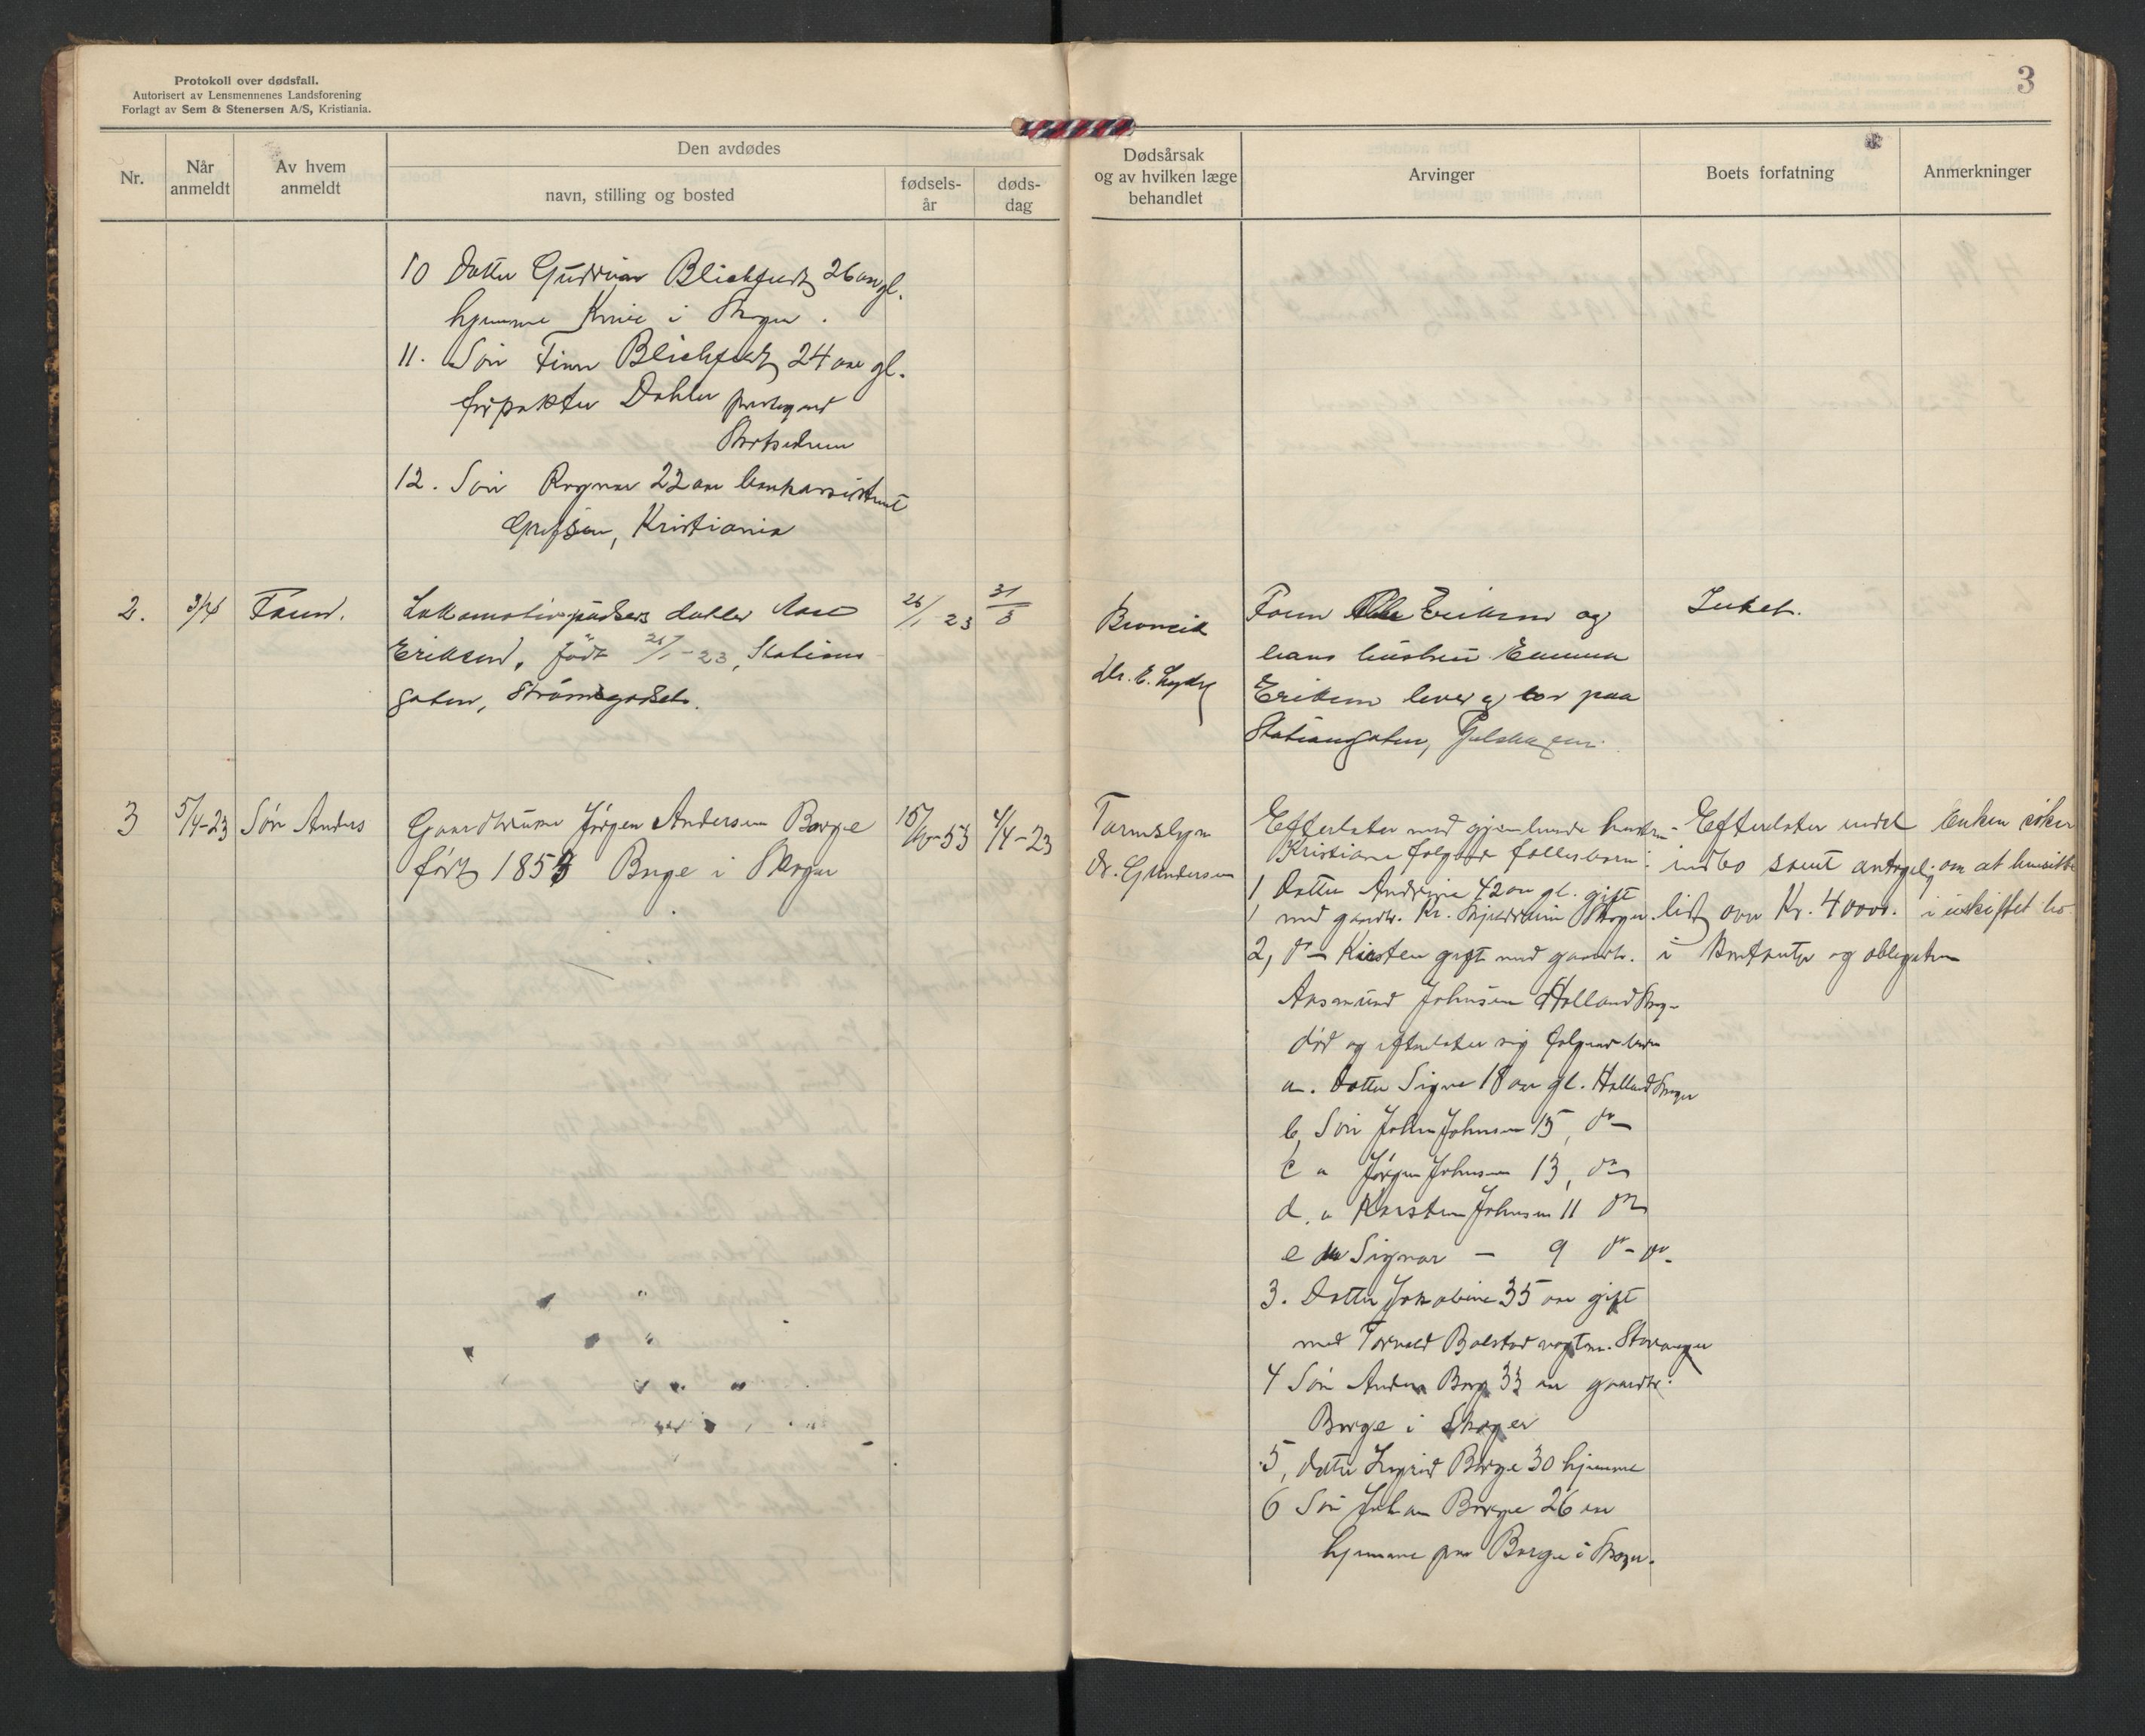 Protokoll over dødsfall.
Autorisert av Lensmennenes Landsforening
Forlagt av Sem & Stenersen A/S, Kristiania.
3
Nr.
Når anmeldt
Av hvem anmeldt
Den avdødes
navn, stilling og bosted
fødsels-år
døds-dag
Dødsårsak og av hvilken læge behandlet
Arvinger
Boets forfatning
Anmerkninger
10 Datter Blichfeldt 26 aar gl.
hjemme i Skoger.
11. Søn Finn Blichfeldt 24 aar gl.
forpakter
12. Søn Ragnar 22 aar bankassistent
Grefsen, Kristiania
2.
3/4
Faren.
Lokomotivpudsers datter Aase
Eriksen, født 26/1-23, Stations
gaten, Strømsgodset.
26/1 23
31/3
Dr. E.
Faren Eriksen og
hans hustru Emma
Eriksen lever og bor paa
Stationsgaten,
Intet.
3
5/4-23
Søn Anders
Gaardbruker Jørgen Andersen Borge
født 1853 Borge i Skoger
15/10-53
4/4-23
Tarmslyng
Dr. Gundersen
Efterlater med gjenlevende hustru
Kristiane følgende fællesbarn:
1 Datter 42 aar gl. gift
med gaardbr. Kr. Skoger.
2, do Kirsten gift med gaardbr.
Aasmund Johnsen Holland Skog-
død og efterlater sig følgende barn
a. Datter Signe 18 aar gl. Holland Skoger
b, Søn John Johnsen 15, do
c " Jørgen Johnsen 13, do
d. " Karsten Johnsen 11 do
e Sigvar — 9 do - do
3. Datter Jakobine 35 aar gift
med Torvald Bolstad Stavanger
4 Søn Anders Borge 33 aar gaardbr.
Borge i Skoger
5, datter Ingrid Borge 30 hjemme
6 Søn Johan Borge 26 aar
hjemme paa Borge i Skoger.
Efterlater endel
indbo samt antagelig
over Kr. 40000.
i og obligation
Enken søker
om at hensitte
i uskiftet bo